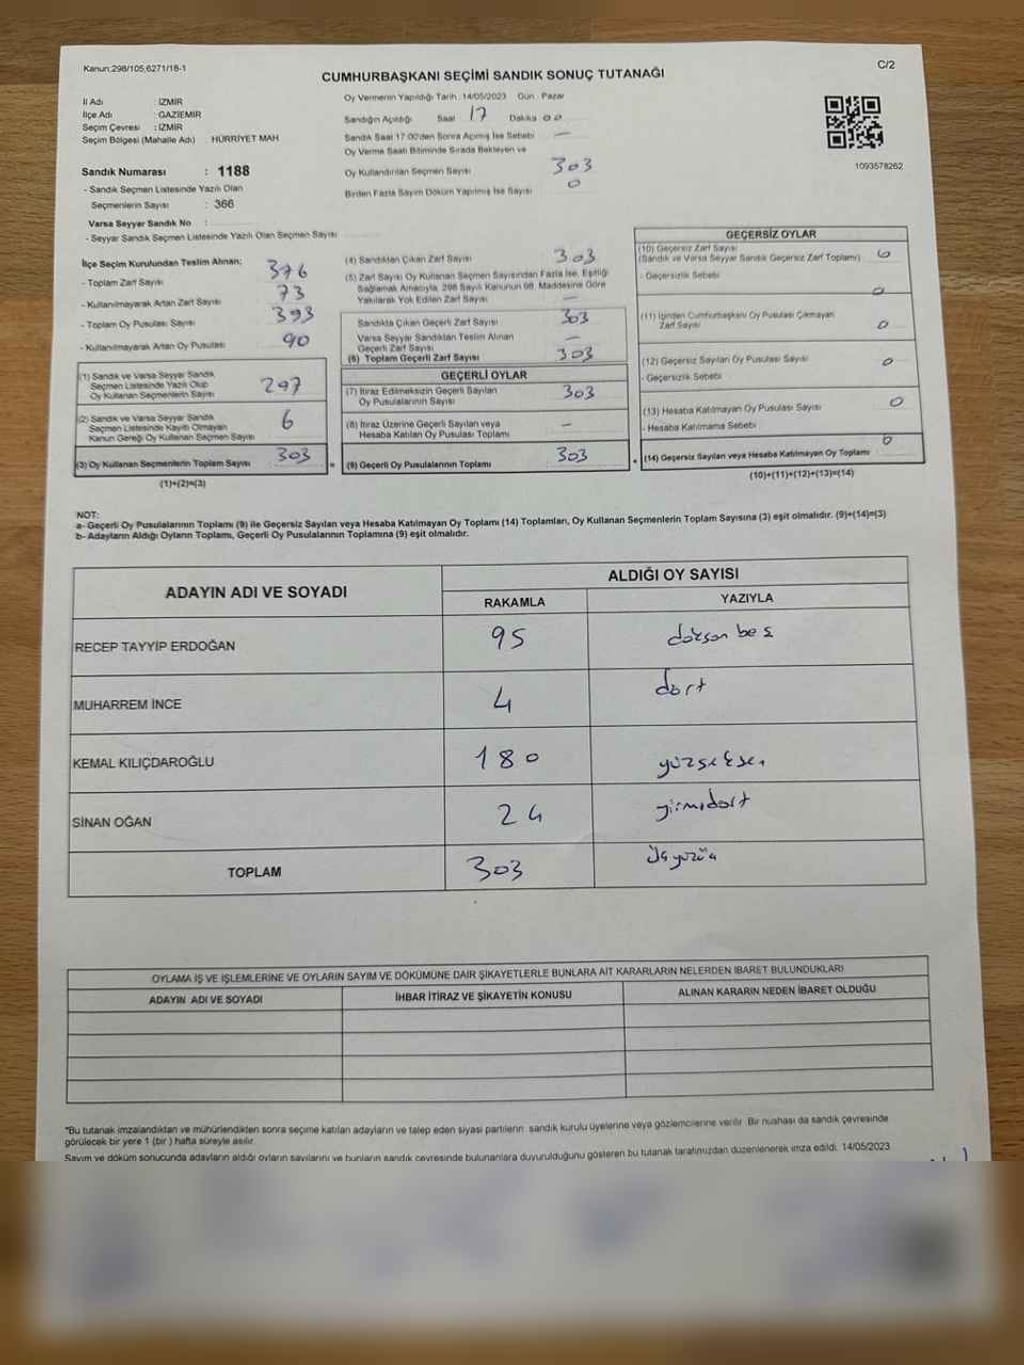 Kanun:298/105,6271/18-1
CUMHURBAŞKANI SEÇİMİ SANDIK SONUÇ TUTANAĞI
C/2
İl Adı : İZMİR
İlçe Adı : GAZİEMİR
Seçim Çevresi : İZMİR
Seçim Bölgesi (Mahalle Adı) : HÜRRİYET MAH
Sandık Numarası : 1188
- Sandık Seçmen Listesinde Yazılı Olan
Seçmenlerin Sayısı : 366
Varsa Seyyar Sandık No :
- Seyyar Sandık Seçmen Listesinde Yazılı Olan Seçmen Sayısı
Oy Vermenin Yapıldığı Tarih :14/05/2023 Gün : Pazar
Sandığın Açıldığı Saat 17 Dakika 00
Sandık Saat 17.00'den Sonra Açılmış İse Sebebi —
Oy Verme Saati Bitiminde Sırada Bekleyen ve
Oy Kullandırılan Seçmen Sayısı 303
Birden Fazla Sayım Döküm Yapılmış İse Sayısı 0
1093578262
İlçe Seçim Kurulundan Teslim Alınan:
- Toplam Zarf Sayısı 376
- Kullanılmayarak Artan Zarf Sayısı 73
- Toplam Oy Pusulası Sayısı 393
- Kullanılmayarak Artan Oy Pusulası 90
(1) Sandık ve Varsa Seyyar Sandık
Seçmen Listesinde Yazılı Olup
Oy Kullanan Seçmenlerin Sayısı 297
(2) Sandık ve Varsa Seyyar Sandık
Seçmen Listesinde Kayıtlı Olmayan
Kanun Gereği Oy Kullanan Seçmen Sayısı 6
(3) Oy Kullanan Seçmenlerin Toplam Sayısı 303
(1)+(2)=(3)
(4) Sandıktan Çıkan Zarf Sayısı 303
(5) Zarf Sayısı Oy Kullanan Seçmen Sayısından Fazla İse, Eşitliği
Sağlamak Amacıyla, 298 Sayılı Kanunun 98. Maddesine Göre
Yakılarak Yok Edilen Zarf Sayısı —
Sandıkta Çıkan Geçerli Zarf Sayısı 303
Varsa Seyyar Sandıktan Teslim Alınan
Geçerli Zarf Sayısı —
(6) Toplam Geçerli Zarf Sayısı 303
GEÇERLİ OYLAR
(7) İtiraz Edilmeksizin Geçerli Sayılan
Oy Pusulalarının Sayısı 303
(8) İtiraz Üzerine Geçerli Sayılan veya
Hesaba Katılan Oy Pusulası Toplamı —
= (9) Geçerli Oy Pusulalarının Toplamı 303
GEÇERSİZ OYLAR
(10) Geçersiz Zarf Sayısı
(Sandık ve Varsa Seyyar Sandık Geçersiz Zarf Toplamı) 0
- Geçersizlik Sebebi
0
(11) İçinden Cumhurbaşkanı Oy Pusulası Çıkmayan
Zarf Sayısı 0
(12) Geçersiz Sayılan Oy Pusulası Sayısı 0
- Geçersizlik Sebebi
(13) Hesaba Katılmayan Oy Pusulası Sayısı 0
- Hesaba Katılmama Sebebi
+ (14) Geçersiz Sayılan veya Hesaba Katılmayan Oy Toplamı 0
(10)+(11)+(12)+(13)=(14)
NOT:
a- Geçerli Oy Pusulalarının Toplamı (9) ile Geçersiz Sayılan veya Hesaba Katılmayan Oy Toplamı (14) Toplamları, Oy Kullanan Seçmenlerin Toplam Sayısına (3) eşit olmalıdır. (9)+(14)=(3)
b- Adayların Aldığı Oyların Toplamı, Geçerli Oy Pusulalarının Toplamına (9) eşit olmalıdır.
ADAYIN ADI VE SOYADI ALDIĞI OY SAYISI
RAKAMLA YAZIYLA
RECEP TAYYİP ERDOĞAN 95 doksan beş
MUHARREM İNCE 4 dört
KEMAL KILIÇDAROĞLU 180 yüzseksen
SİNAN OĞAN 24 yirmidört
TOPLAM 303 üçyüzüç
OYLAMA İŞ VE İŞLEMLERİNE VE OYLARIN SAYIM VE DÖKÜMÜNE DAİR ŞİKAYETLERLE BUNLARA AİT KARARLARIN NELERDEN İBARET BULUNDUKLARI
ADAYIN ADI VE SOYADI İHBAR İTİRAZ VE ŞİKAYETİN KONUSU ALINAN KARARIN NEDEN İBARET OLDUĞU
*Bu tutanak imzalandıktan ve mühürlendikten sonra seçime katılan adayların ve talep eden siyasi partilerin sandık kurulu üyelerine veya gözlemcilerine verilir. Bir nüshası da sandık çevresinde
görülecek bir yere 1 (bir ) hafta süreyle asılır.
Sayım ve döküm sonucunda adayların aldığı oyların sayılarını ve bunların sandık çevresinde bulunanlara duyurulduğunu gösteren bu tutanak tarafımızdan düzenlenerek imza edildi. 14/05/2023